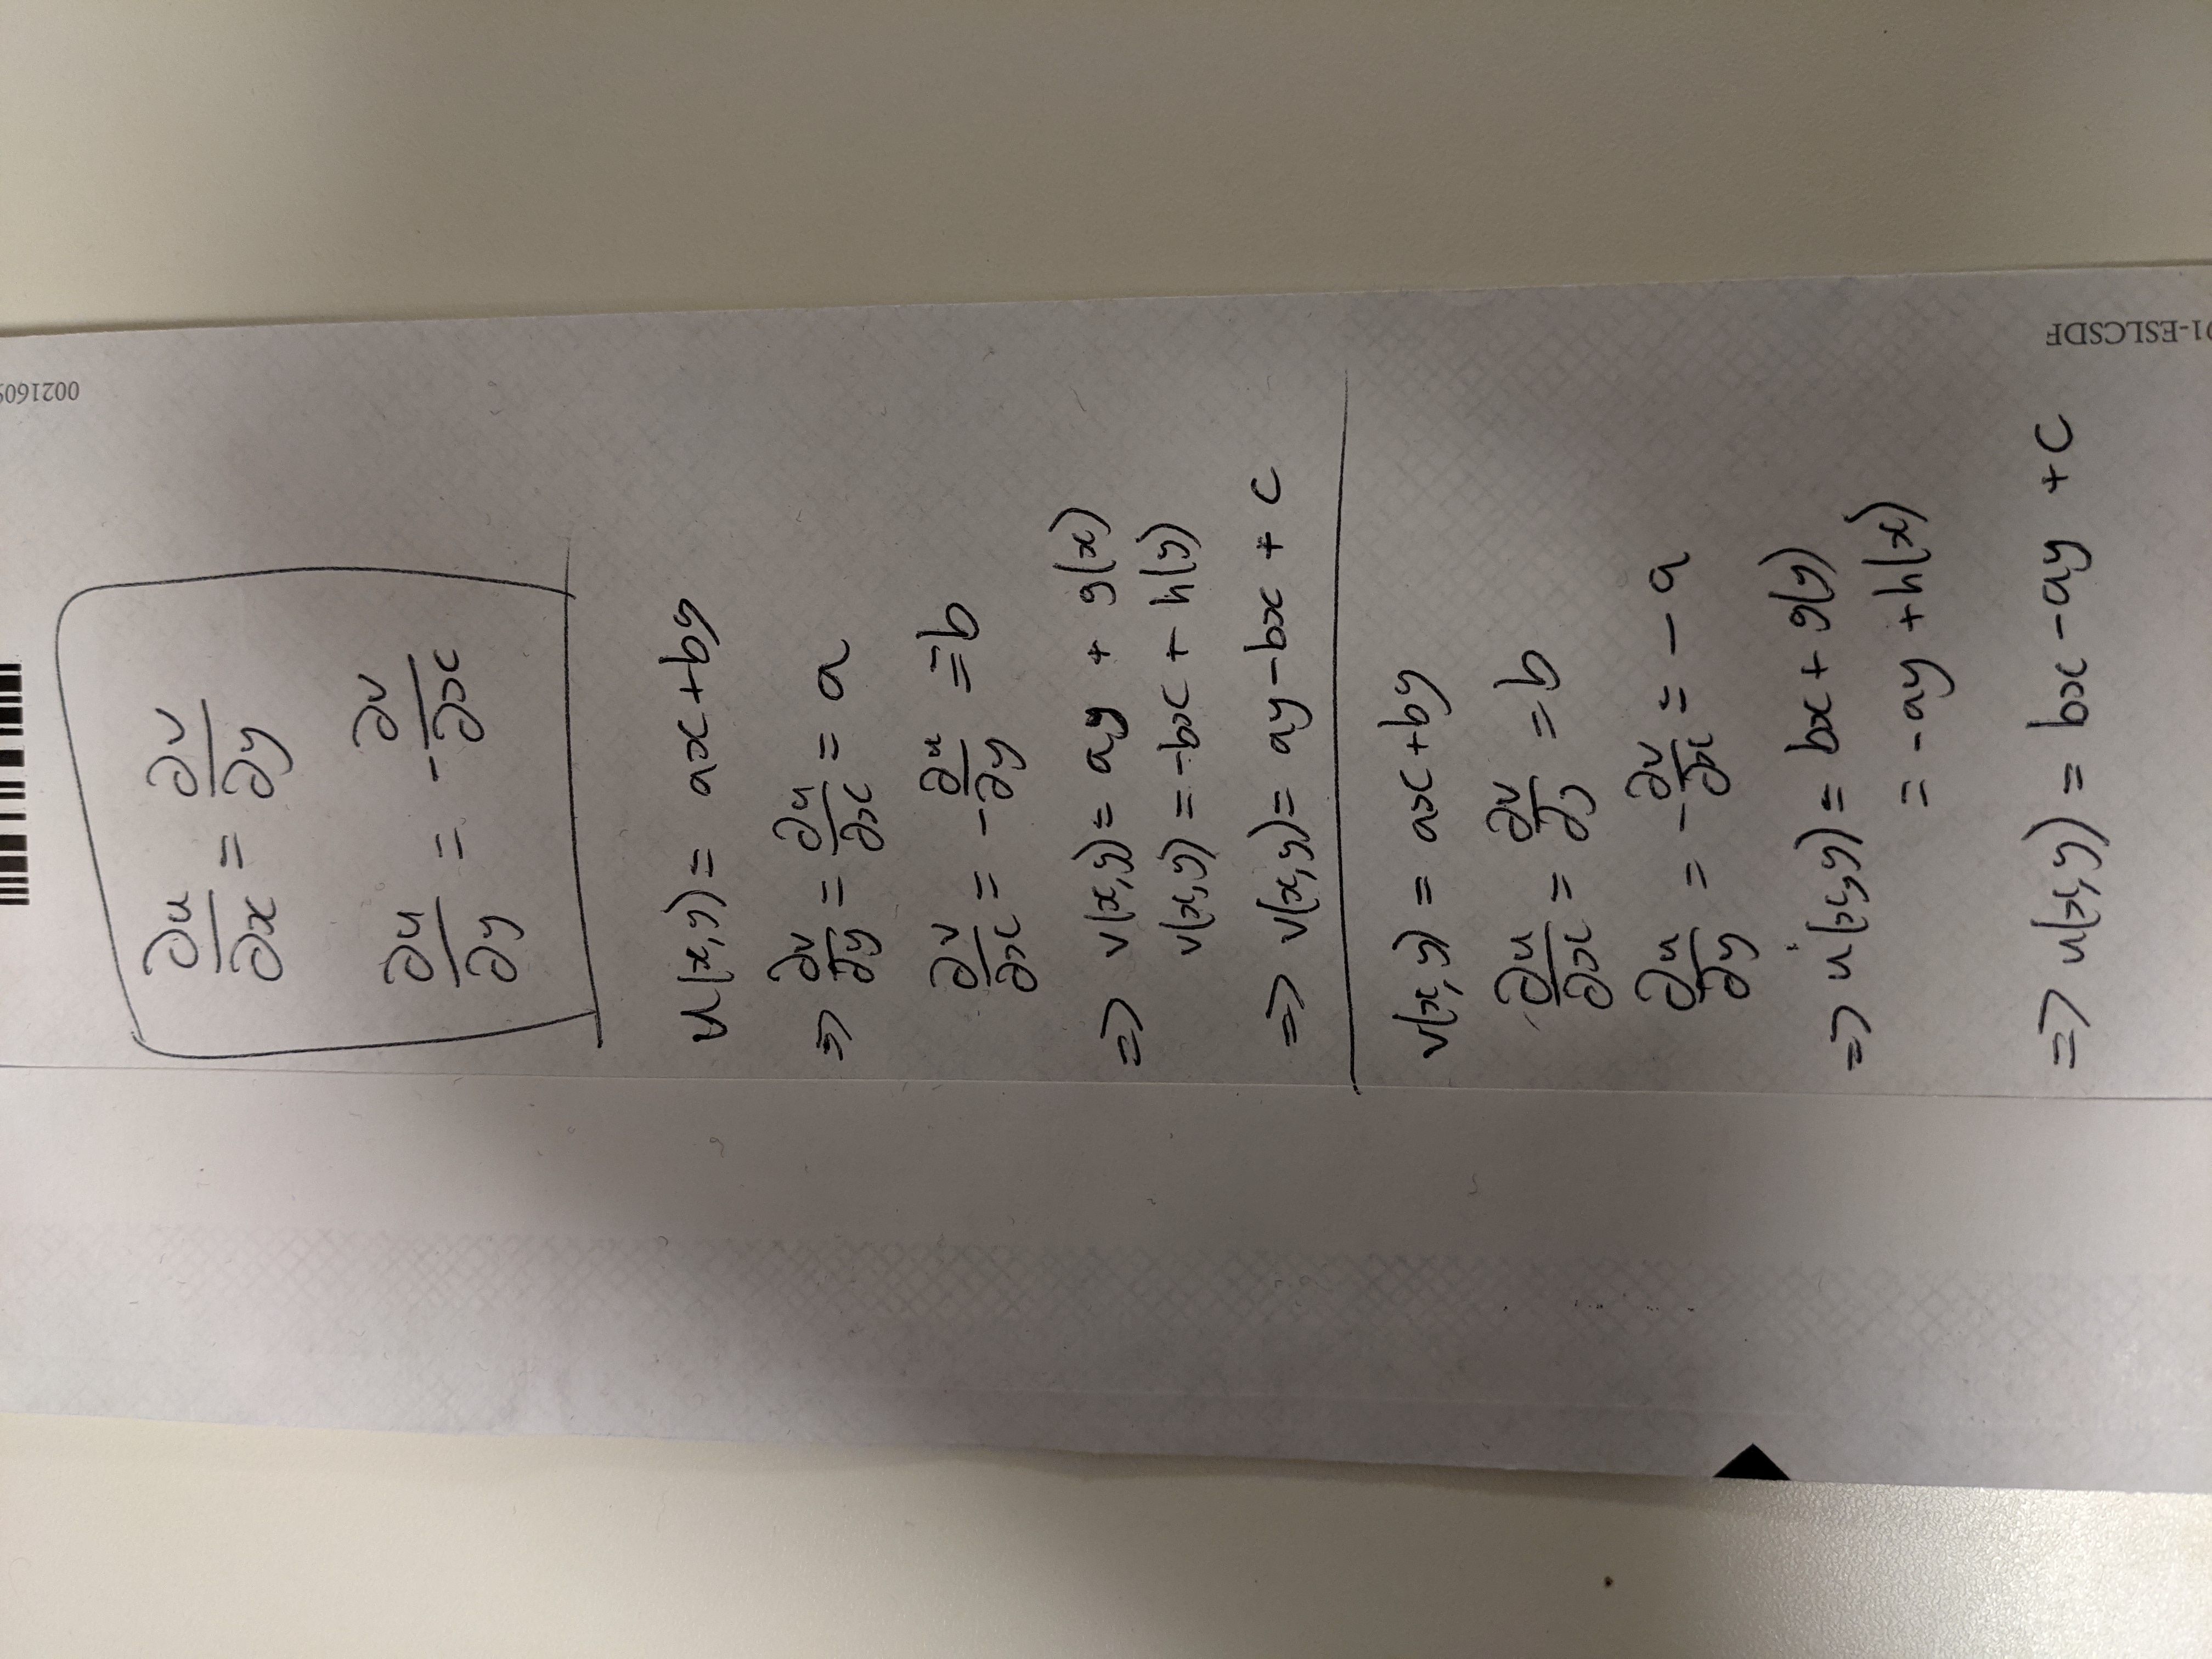 002160
∂u/∂x = ∂v/∂y
∂u/∂y = -∂v/∂x
u(x,y) = ax+by
=> ∂v/∂y = ∂u/∂x = a
∂v/∂x = -∂u/∂y = b
=> v(x,y) = ay + g(x)
v(x,y) = -bx + h(y)
=> v(x,y) = ay-bx + c
v(x,y) = ax+by
∂u/∂x = ∂v/∂y = b
∂u/∂y = -∂v/∂x = -a
=> u(x,y) = bx + g(y)
= -ay + h(x)
=> u(x,y) = bx-ay + c
1-ESLCSDF